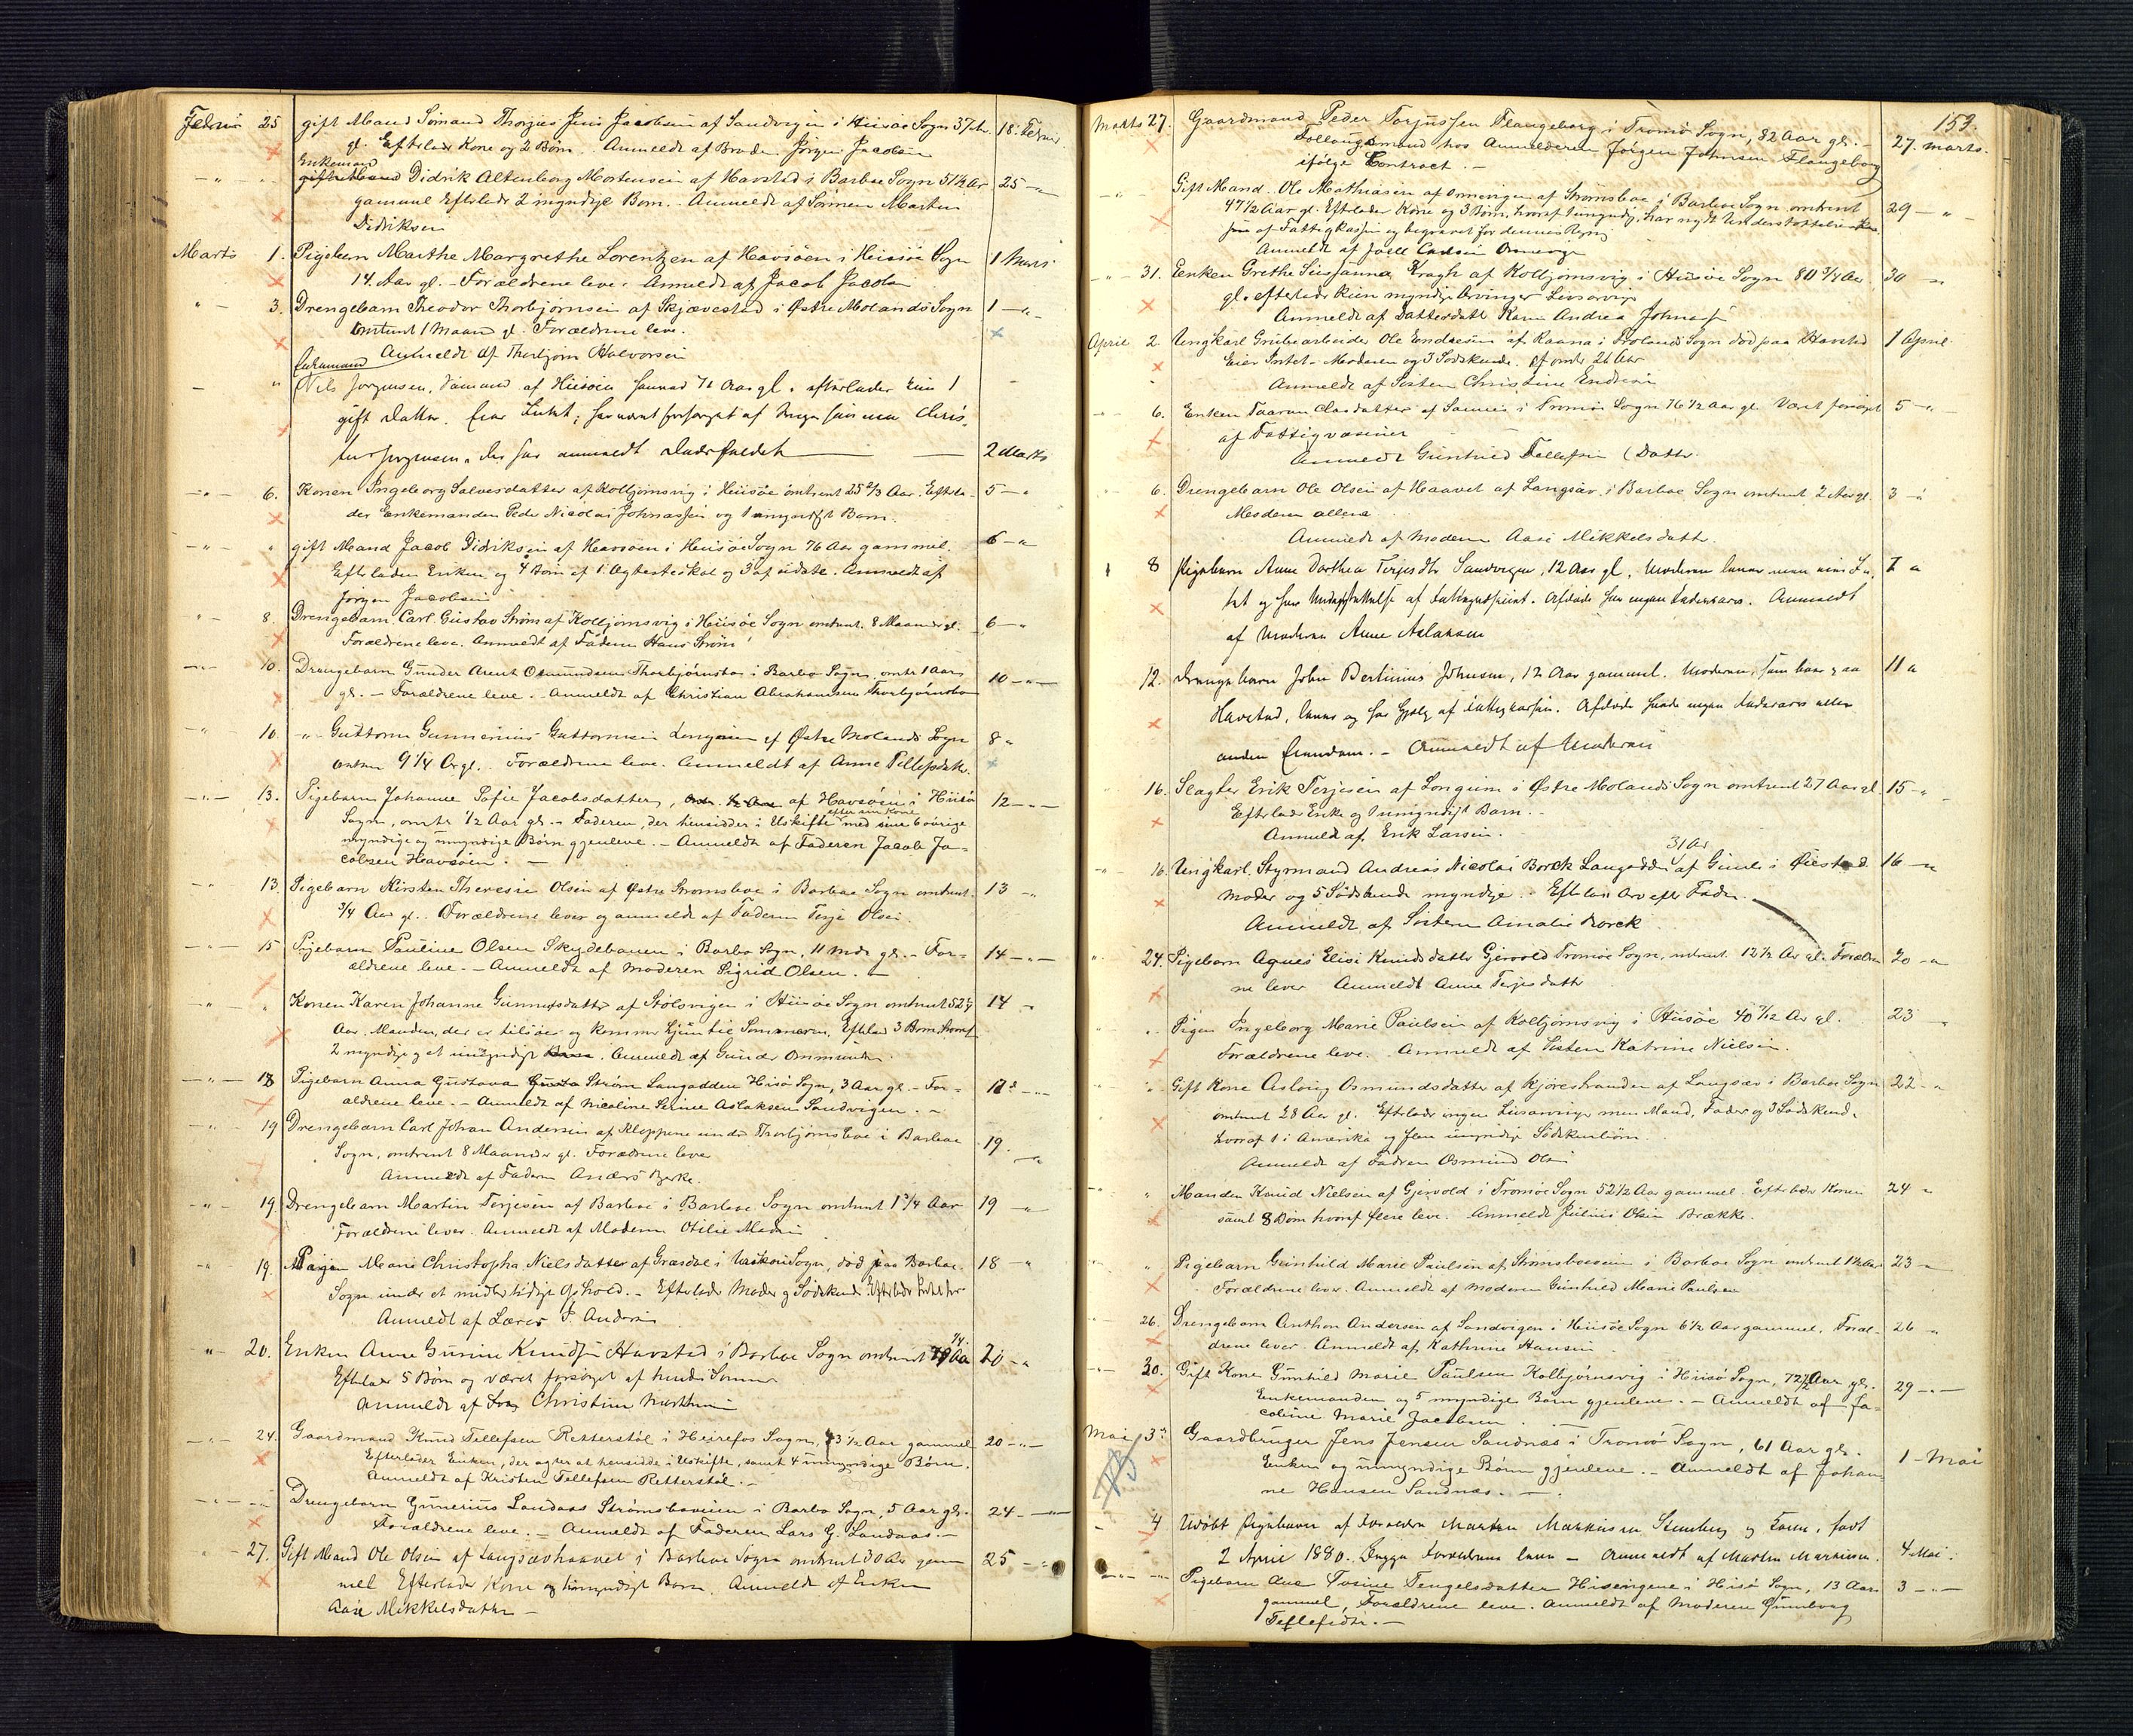 Februar 25 gift Mand Sømand Thorjus Jens Jacobsen af Sandvigen i Hiisøe Sogn 37 18. Februar
gl. Efterlader Kone og 2 Børn. Anmeldt af Broder Jørgen Jacobsen
Enkemand
Didrik Altenborg Mortensen af Havstad i Barboe Sogn 51½ Aar 25 -"-
gammel Efterlader 2 myndige Børn. Anmeldt af Sønnen Morten
Didriksen
Marts 1. Pigebarn Marthe Margrethe Lorentzen af Havsøen i Hiisøe Sogn 1 Marts
14 Aar gl. - Forældrene leve. Anmeldt af Jacob Jacobsen
" 3. Drengebarn Theodor Thorbjørnsen af Skjævestad i Østre Molands Sogn 1 -"-
omtrent 1 Maaned gl. Forældrene leve.
Anmeldt af Thorbjørn Halvorsen
Enkemand
Nils Jørgensen, Sømand af Hiisøen 71 Aar gl. efterlader kun 1
gift Datter. Eier Intet; har været forsørget af Chris-
ten Jørgensen, der har anmeldt Dødsfaldet 2 Marts
-"- 6. Konen Ingeborg Salvesdatter af Kolbjørnsvig i Hiisøe omtrent 25 2/3 Aar. Efterla- 5 -"
der Enkemanden Peder Nicolai Johnassen og 1 umyndigt Barn.
-"- " gift Mand Jacob Didriksen af Havsøen i Hiisøe Sogn 76 Aar gammel. 6 -"
Efterlader Enken og 4 Børn af 1. Ægteskab og 3 af sidste. Anmeldt af
Jørgen Jacobsen
" 8. Drengebarn Carl Gustav Strøm af Kolbjørnsvig i Hiisøe Sogn omtrent 8 Maaneder gl. 6 -"
Forældrene leve. Anmeldt af Faderen Hans Strøm
-"- 10. Drengebarn Gunder Arent Osmundsen Thorbjørnsbo i Barbo Sogn, omtr 1 Aar 10 -"-
gl. - Forældrene leve. - Anmeldt af Christian Abrahamsen Thorbjørnsbo
" 10. -"- Guttorm Gunnerius Guttormsen Longum af Østre Molands Sogn 8 "
omtrent 9¼ Ar gl. Forældrene leve. Anmeldt af Anne Pellefsdatter.
-"- 13. Pigebarn Johanne Sofie Jacobsdatter, af Havsøen i Hiisø 12 -"-
Sogn, omtr ½ Aar gl. - Faderen, der hensidder i Uskifte efter sin Kone med sine 6 øvrige
myndige og umyndige Børn gjenleve. - Anmeldt af Faderen Jacob Ja-
cobsen Havsøen. -
" 13. Pigebarn Kirsten Theresie Olsen af Østre Strømsboe i Barboe Sogn omtrent 13 "
¾ Aar gl. Forældrene lever og anmeldt af Faderen Terje Olsen.
-"- 15 Pigebarn Pauline Olsen Skydebanen i Barbo Sogn, 11 mdr gl. - For- 14 -"-
ældrene leve. - Anmeldt af Moderen Sigrid Olsen. -
" " Konen Karen Johanne Gunnufsdatter af Stølsvigen i Hiisøe Sogn omtrent 52¼ 14
Aar. Manden, der er tilsøes og kommer hjem til Sommeren. Efterlad 3 Børn, hvoraf
2 myndige og et umyndigt. Anmeldt af Gunder Osmundsen
-"- 18 Pigebarn Anna Gustava Strøm Langødden Hisø Sogn, 3 Aar gl. - For- 17 -"-
ældrene leve. - Anmeldt af Nicoline Serine Aslaksen Sandvigen. -
-"- 19 Drengebarn Carl Johan Andersen af Kloppene under Thorbjørnsboe i Barboe 19.
Sogn, omtrent 8 Maaneder gl. Forældrene lever
Anmeldt af Faderen Anders Bjerke.
-"- 19. Drengebarn Martin Terjesen af Barboe i Barboe Sogn omtrent 1¾ Aar 19 -"
Forældrene lever. Anmeldt af Moderen Otilie
" 19. Pigen Marie Christopha Nielsdatter af Græsdal i Sogn, død paa Barboe 18 -"
Sogn under et midlertidigt Ophold. - Efterlader Moder og Sødskende.
Anmeldt af Lærer P. Andersen
-"- 20. Enken Anne Gurine Knudsen Havstad i Barboe Sogn omtrent 74 Aar 20 -"
Efterlader 5 Børn og været forsørget af hendes Sønner
Anmeldt af Christian
-"- 24. Gaardmand Knud Tellefsen Retterstøl i Heirefos Sogn, 43½ Aar gammel 20 -"-
Efterlader Enken, der agter at hensidde i Uskifte, samt 4 umyndige Børn.
Anmeldt af Kristen Tellefsen Retterstøl. -
-"- -"- Drengebarn Gunerius Landaas Strømsboveien i Barbo Sogn, 5 Aar gl. 24 -"-
Forældrene leve. - Anmeldt af Faderen Lars G. Landaas. -
" 27. Gift Mand Ole Olsen af Langsævhaavet i Barboe Sogn omtrent 30 Ar gam- 25 -"-
mel Efterlader Kone og 1 umyndigt Barn. Anmeldt af Enken
Aase Mikkelsdatter -
153.
Marts 27. Gaardmand Peder Torjussen Flangeborg i Tromø Sogn, 82 Aar gl. - 27. Marts.
Follaugsmand hos Anmelderen Jørgen Johnsen Flangeborg
ifølge Contract. -
-"- Gift Mand Ole Mathiasen af Omringen af Strømsboe i Barboe Sogn omtrent 29 -"-
47½ Aar gl. Efterlader Kone og 3 Børn, hvoraf 1 umyndig, har nydt Understøttelse
af Fattigkassen og begravet for dennes Regning
Anmeldt af
-"- 31. Enken Grethe Susanna Kragh af Kolbjørnsvig i Hiisøe Sogn 80¾ Aar 30 -"
gl. efterlader kun myndige Arvinger Livsarvinger
Anmeldt af Datterdatter Karen Andrea Johnassen
April 2. Ungkarl Grubearbeider Ole Endresen af Raana i Frolands Sogn død paa Havstad 1 April
Eier Intet - Moderen og 3 Sødskende. af omtr 21 Aar
Anmeldt af Søsteren Christine Endresen
6. Enken Taaran Olasdatter af i Tromøe Sogn 76½ Aar gl. Været forsørget 5 -"
af Fattigvæsenet
Anmeldt Gunhild Tellefsen (Datter
6. Drengebarn Ole Olsen af Haavet af Langsæv i Barboe Sogn omtrent 2 Aar gl. 3 -"
Moderen allene
Anmeldt af Moderen Aase Mikkelsdatter
8 Pigebarn Anne Dorthea Terjesdtr Sandvigen, 12 Aar gl. Moderen lever men eier In- 7 "
tet og har Understøttelse af Fattigvæsenet. Afdøde har ingen Fadersarv. Anmeldt
af Moderen Anne Aslaksen
12. Drengebarn John Bertinius Johnsen, 12 Aar gammel. Moderen, som boer paa 11 "
Havstad, lever og har Hjelp af Fattigkassen. Afdøde havde ingen Fadersarv eller
anden Eiendom. - Anmeldt af Moderen
16. Slagter Erik Terjesen af Longum i Østre Molands Sogn omtrent 27 Aar gl. 15 -"-
Efterlader Enke og 1 umyndigt Barn. -
Anmeldt af Erik Larsen.
16. Ungkarl Styrmand Andreas Nicolai Borck Langødden 31 Ar af Gimle i Øiestad 16 -"
Moder og 5 Sødskende myndige. Efterlader Arv efter Fader.
Anmeldt af Søsteren Amalie Borck
24. Pigebarn Agnes Elise Knudsdatter Gjervold Tromøe Sogn, omtrent 12½ Ar gl. Forældre- 20 -"
ne lever Anmeldt Anne Terjesdatter
" Pigen Ingeborg Marie Paulsen af Kolbjørnsvig i Hiisøe 40 7/12 Ar gl. 23 -
Forældrene leve. Anmeldt af Søsteren Katrine Nielsen.
" Gift Kone Aslaug Osmundsdatter af Kjørestranden af Langsæv i Barboe Sogn 22 -"
omtrent 28 Aar gl. Efterlader ingen Livsarvinger men Mand, Fader og 3 Sødskende
hvoraf 1 i Amerika og flere umyndige Sødskendbørn
Anmeldt af Faderen Osmund Olsen
" Manden Knud Nielsen af Gjervold i Tromøe Sogn 52½ Aar gammel. Efterlader Konen 24 "
samt 8 Børn hvoraf flere leve. Anmeldt Julius Olsen Brække.
" Pigebarn Gunhild Marie Paulsen af Strømsboeveien i Barboe Sogn omtrent 1½ Aar 23 -
Forældrene lever. Anmeldt af Moderen Gunhild Marie Paulsen
26. Drengebarn Anthon Andersen af Sandvigen i Hiisøe Sogn 6½ Aar gammel. Foræl- 26 "
drene lever. Anmeldt af Kathrine Hansen
30. Gift Kone Gunhild Marie Paulsen Kolbjørnsvig i Hiisø Sogn, 72½ Aar gl. 29 -"-
Enkemanden og 5 myndige Børn gjenleve. - Anmeldt af Ja-
cobine Marie Jacobsen.
Mai 3. Gaardbruger Jens Jensen Sandnæs i Tromø Sogn, 61 Aar gl. 1 - Mai
Enken og umyndige Børn gjenleve. - Anmeldt af Johan-
ne Hansen Sandnæs. -
4 Udøbt Pigebarn af Forældre Morten Markussen Stenberg og Kone, født
2 April 1880. Begge Forældrene lever - Anmeldt af Morten Markussen. 4 Mai.
-"- Pigebarn Ane Tosine Tengelsdatter Hisengene i Hisø Sogn, 13 Aar 3 -"-
gammel, Forældrene leve. Anmeldt af Moderen Gunborg
Tellefsdtr. -